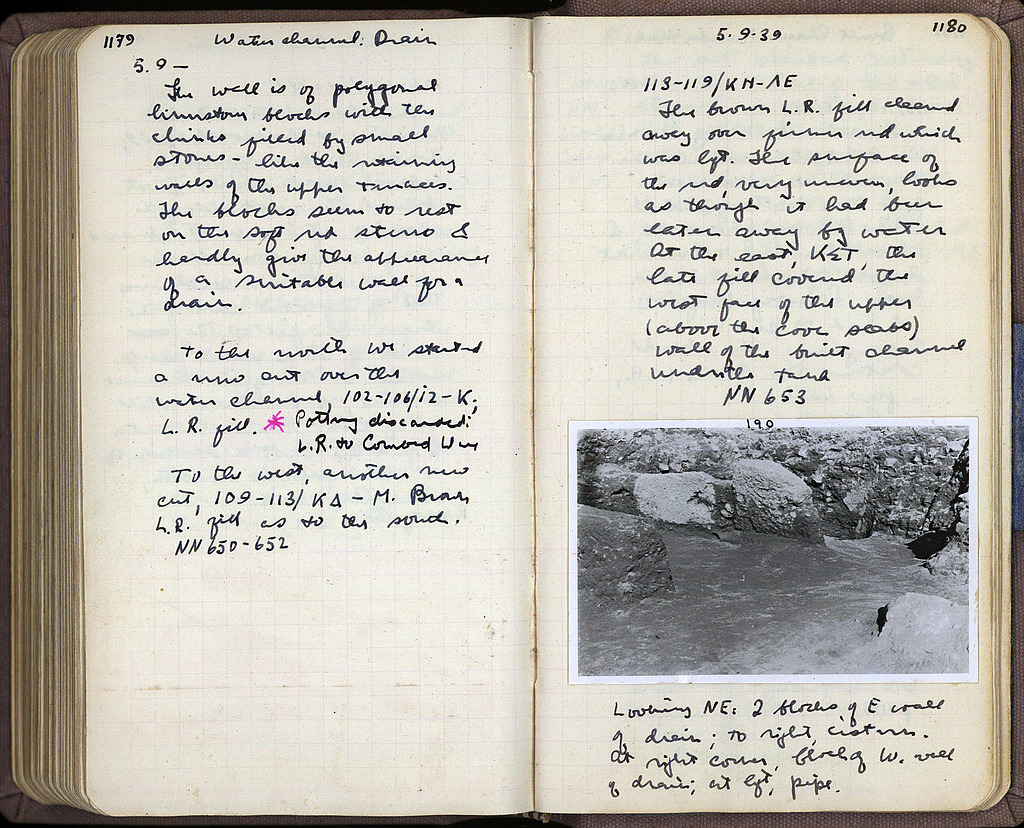 1179 Water channel: Drain
5.9—
The wall is of polygonal
limestone blocks with the
chinks filled by small
stones - like the retaining
walls of the upper terraces.
The blocks seem to rest
on the soft red stereo &
hardly give the appearance
of a suitable wall for a
drain.
To the north we started
a new cut over the
water channel, 102-106/IZ-K,
L.R. fill. * Pottery discarded:
L.R. to Combed Ware
To the west, another new
cut, 109-113/KΔ-M. Brown
L.R. fill as to the south.
NN 650-652
5.9.39 1180
113-119/KH-ΛE
The brown L.R. fill cleared
away over firmer red which
was left. The surface of
the red, very uneven, looks
as though it had been
eaten away by water
At the east, KΣT, the
late fill covered the
west face of the upper
(above the cover slabs)
wall of the built channel
under the tank
NN 653
190
Looking NE: 2 blocks of E wall
of drain; to right, cistern.
At right corner, block of W. wall
of drain; at left, pipe.